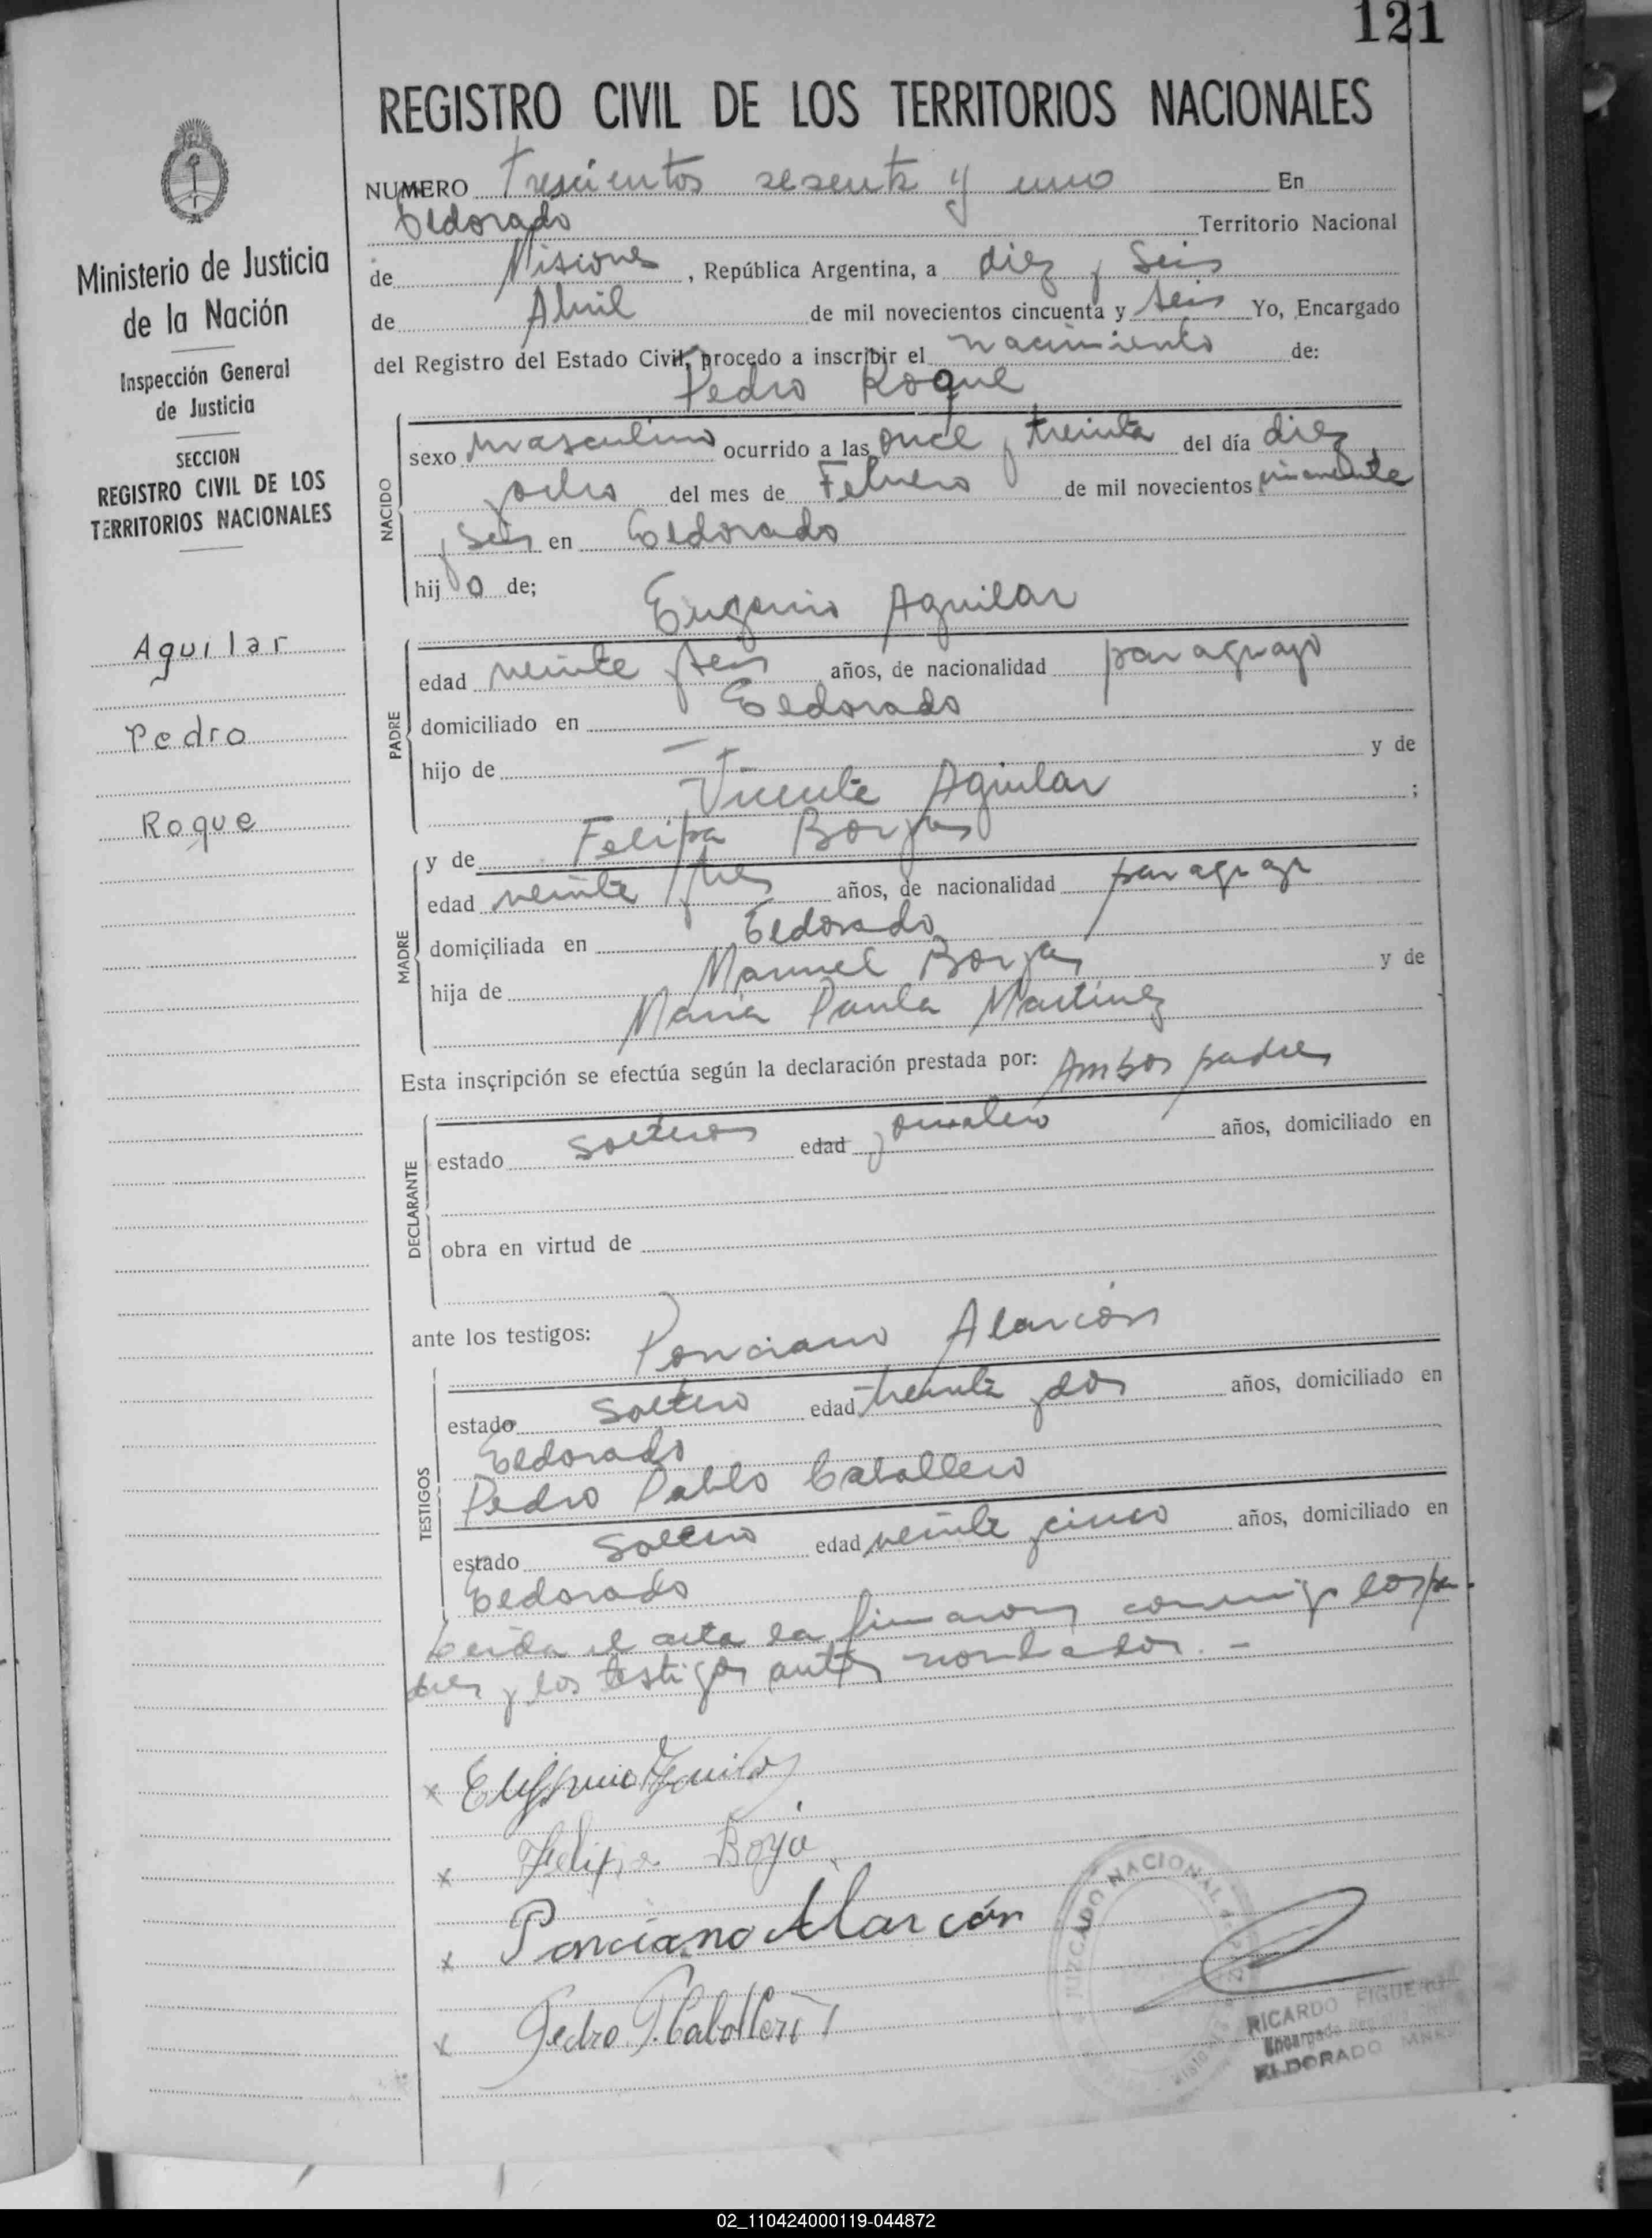 121
REGISTRO CIVIL DE LOS TERRITORIOS NACIONALES
NUMERO Trescientos sesenta y uno En
Eldorado Territorio Nacional
de Misiones, República Argentina, a diez y Seis
de Abril de mil novecientos cincuenta y seis Yo, Encargado
del Registro del Estado Civil, procedo a inscribir el nacimiento de:
Pedro Roque
Ministerio de Justicia
de la Nación
Inspección General
de Justicia
SECCION
REGISTRO CIVIL DE LOS
TERRITORIOS NACIONALES
Aguilar
Pedro
Roque
NACIDO
sexo masculino ocurrido a las once y treinta del día diez
yocho del mes de Febrero de mil novecientos cincuenta
y Seis en Eldorado
hijo de;
Eugenio Aguilar
PADRE
edad veinte y seis años, de nacionalidad paraguayo
domiciliado en Eldorado
hijo de y de
Vicente Aguilar ;
y de Felipa Borja
MADRE
edad veinte y tres años, de nacionalidad paraguaya
domiciliada en Eldorado
hija de Manuel Borja y de
María Paula Martínez
Esta inscripción se efectúa según la declaración prestada por: Ambos padres
DECLARANTE
estado solteros edad jornalero años, domiciliado en
obra en virtud de
ante los testigos: Ponciano Alarcón
TESTIGOS
estado soltero edad treinta y dos años, domiciliado en
Eldorado
Pedro Pablo Caballero
estado soltero edad veinte y cinco años, domiciliado en
Eldorado
Leida el acta la firmaron conmigo los pa-
dres y los testigos antes nombrados. -
x Eugenio Aguilar
x Felipa Borja
x Ponciano Alarcón
x Pedro P. Caballero
JUZGADO NACIONAL
RICARDO FIGUEROA
Encargado Registro Civil
ELDORADO MNES
02_110424000119-044872